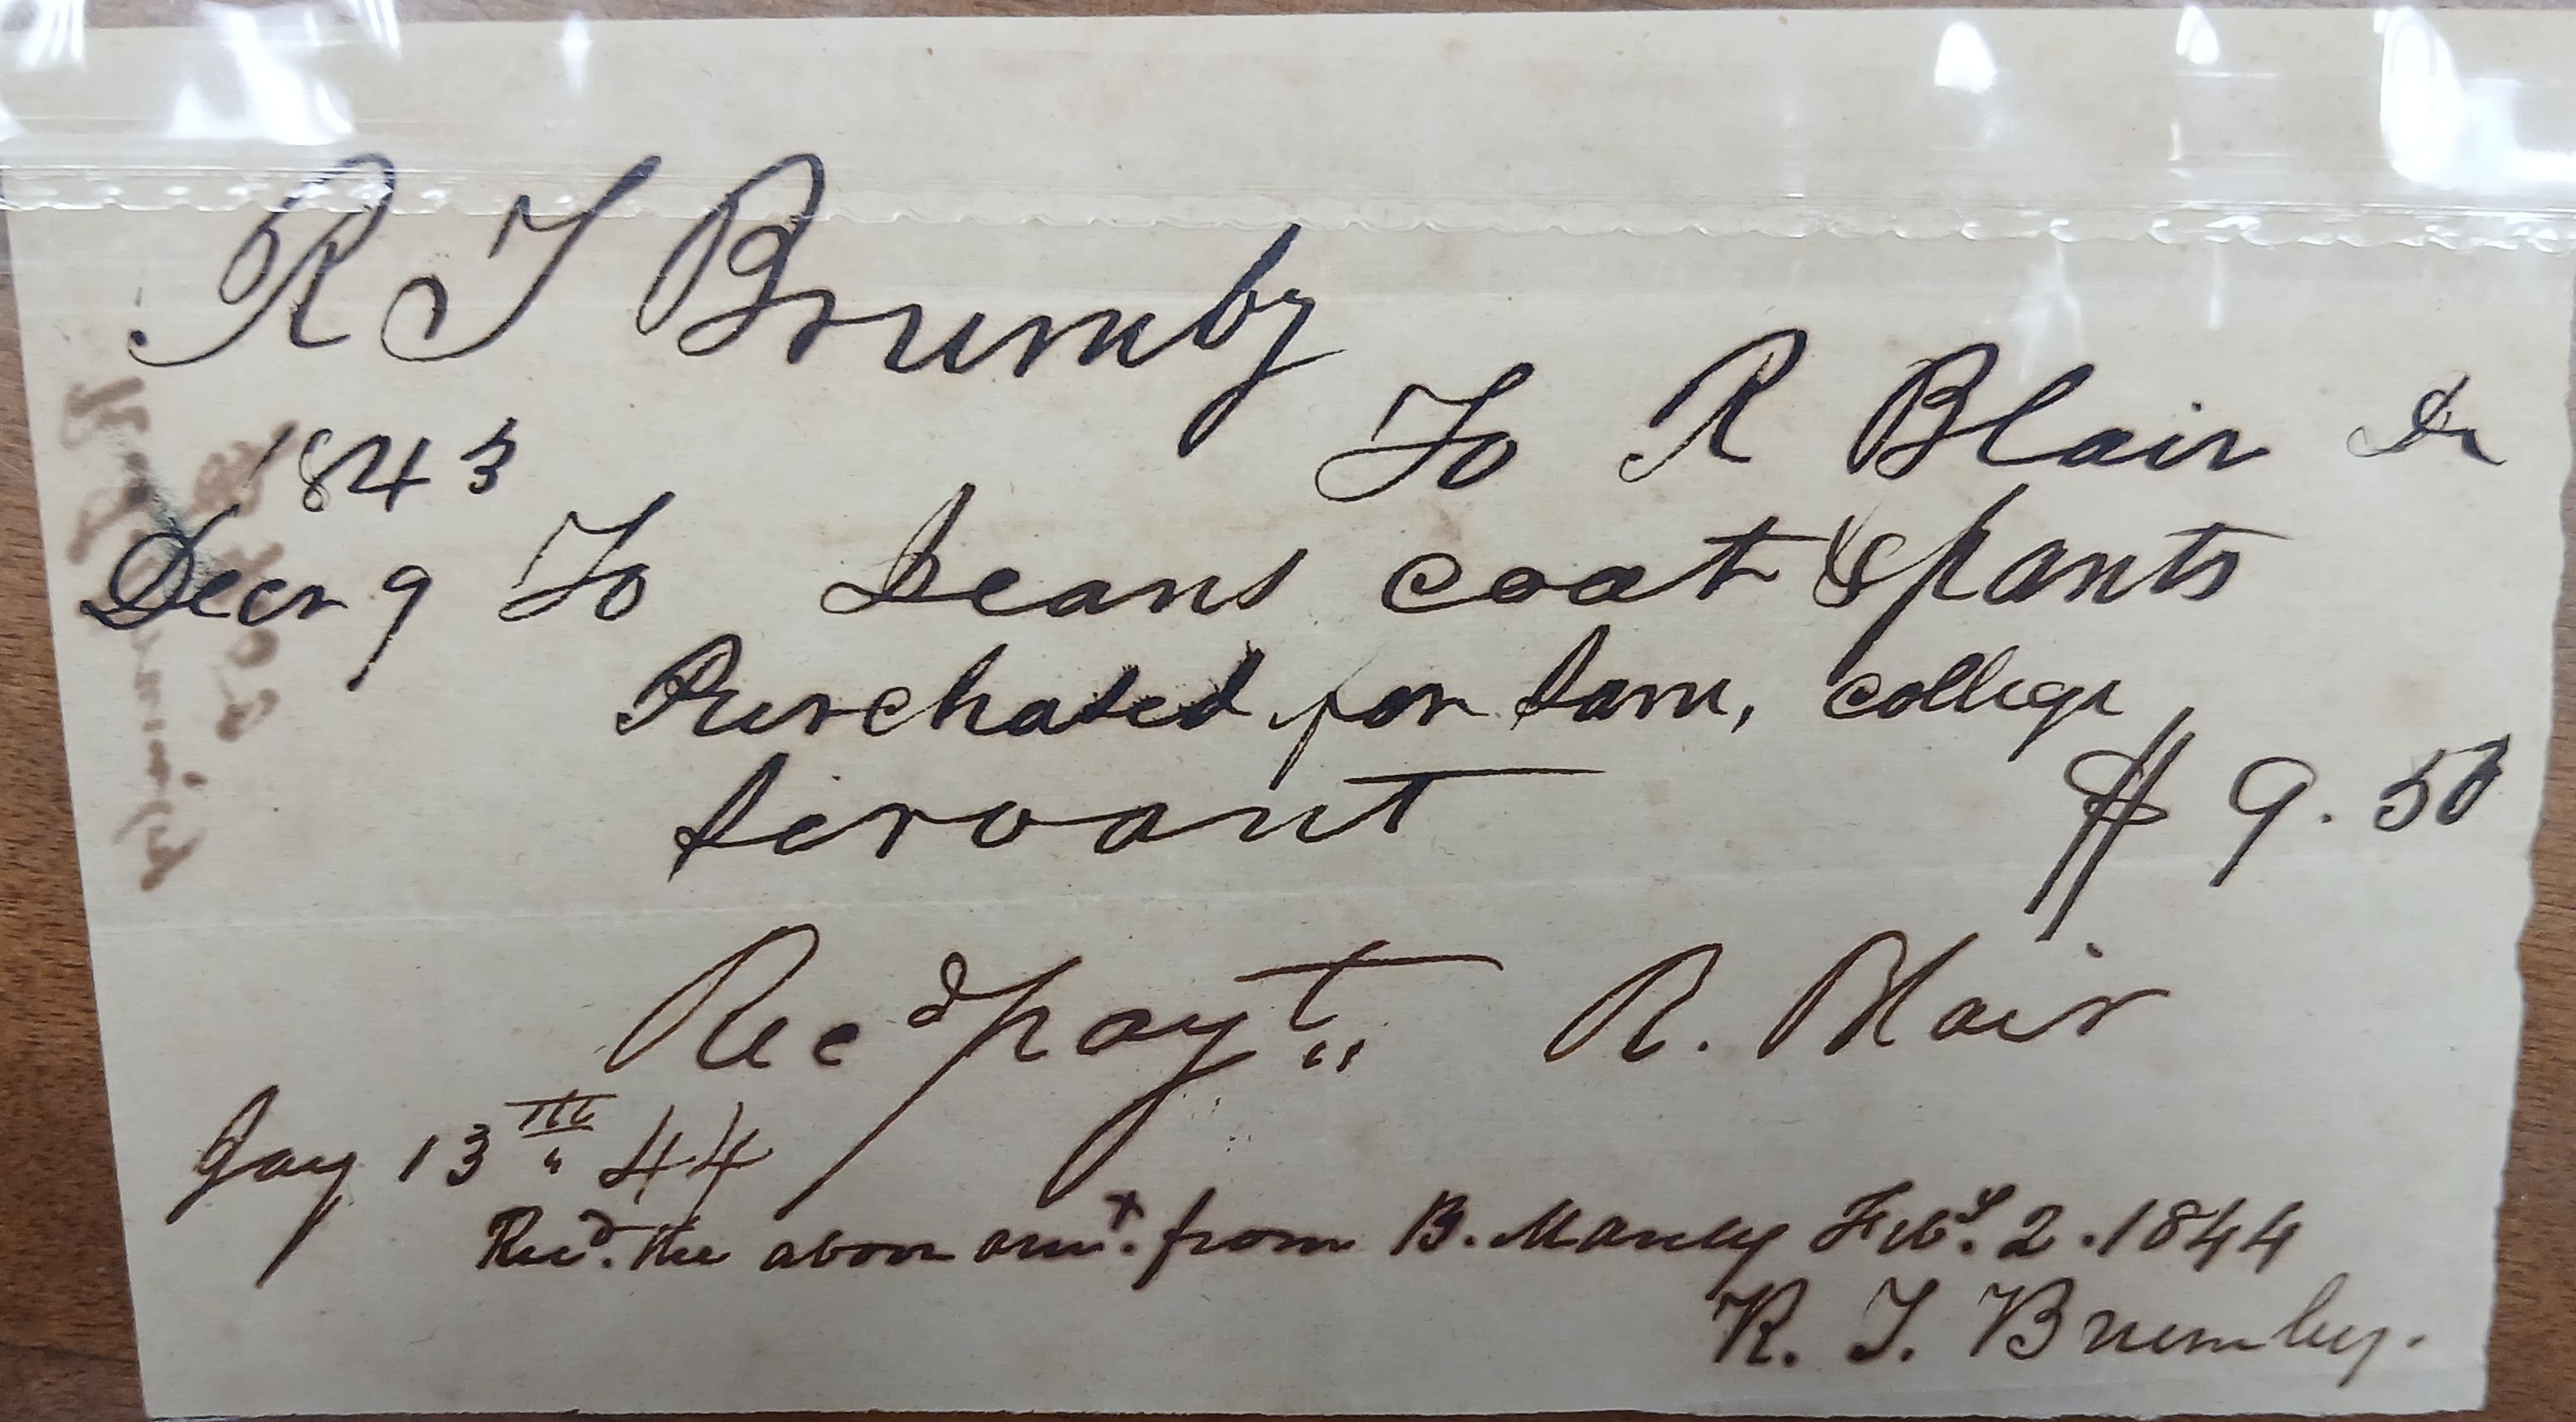 R T Brumby
To R Blair Dr
1843
Decr 9 To Jeans coat & pants
Purchased for Sam, college
servant $ 9.50
Recd payt R. Blair
Jay 13th 44
Recd. the above amt. from B. Manly Feby. 2. 1844
R. T. Brumby.